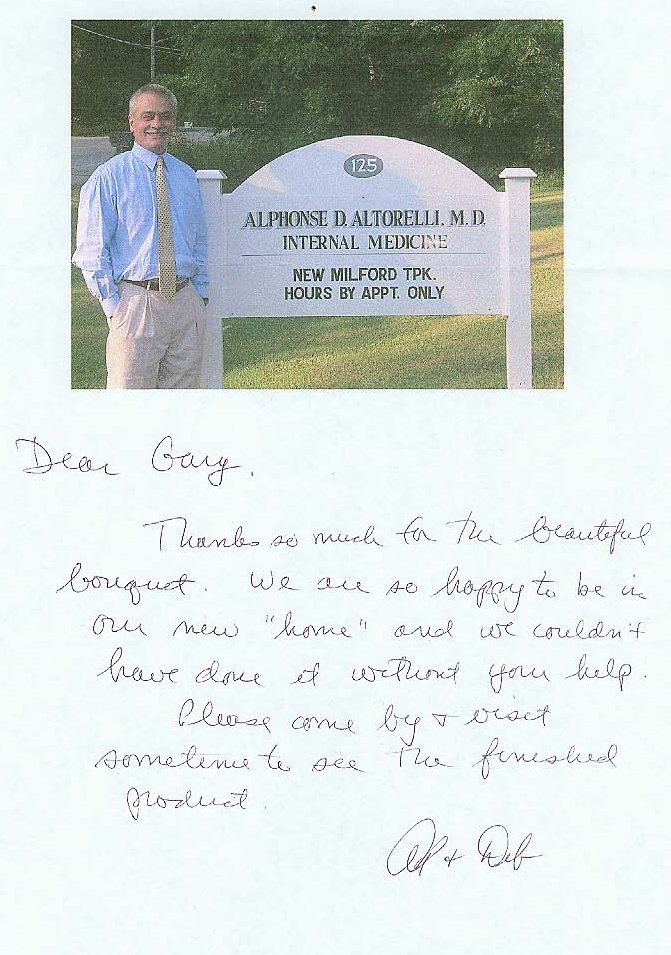 125
ALPHONSE D. ALTORELLI. M.D.
INTERNAL MEDICINE
NEW MILFORD TPK.
HOURS BY APPT. ONLY
Dear Gary,
Thanks so much for the beautiful
bouquet. We are so happy to be in
our new "home" and we couldn't
have done it without your help.
Please come by + visit
sometime to see the finished
product.
Al + Deb